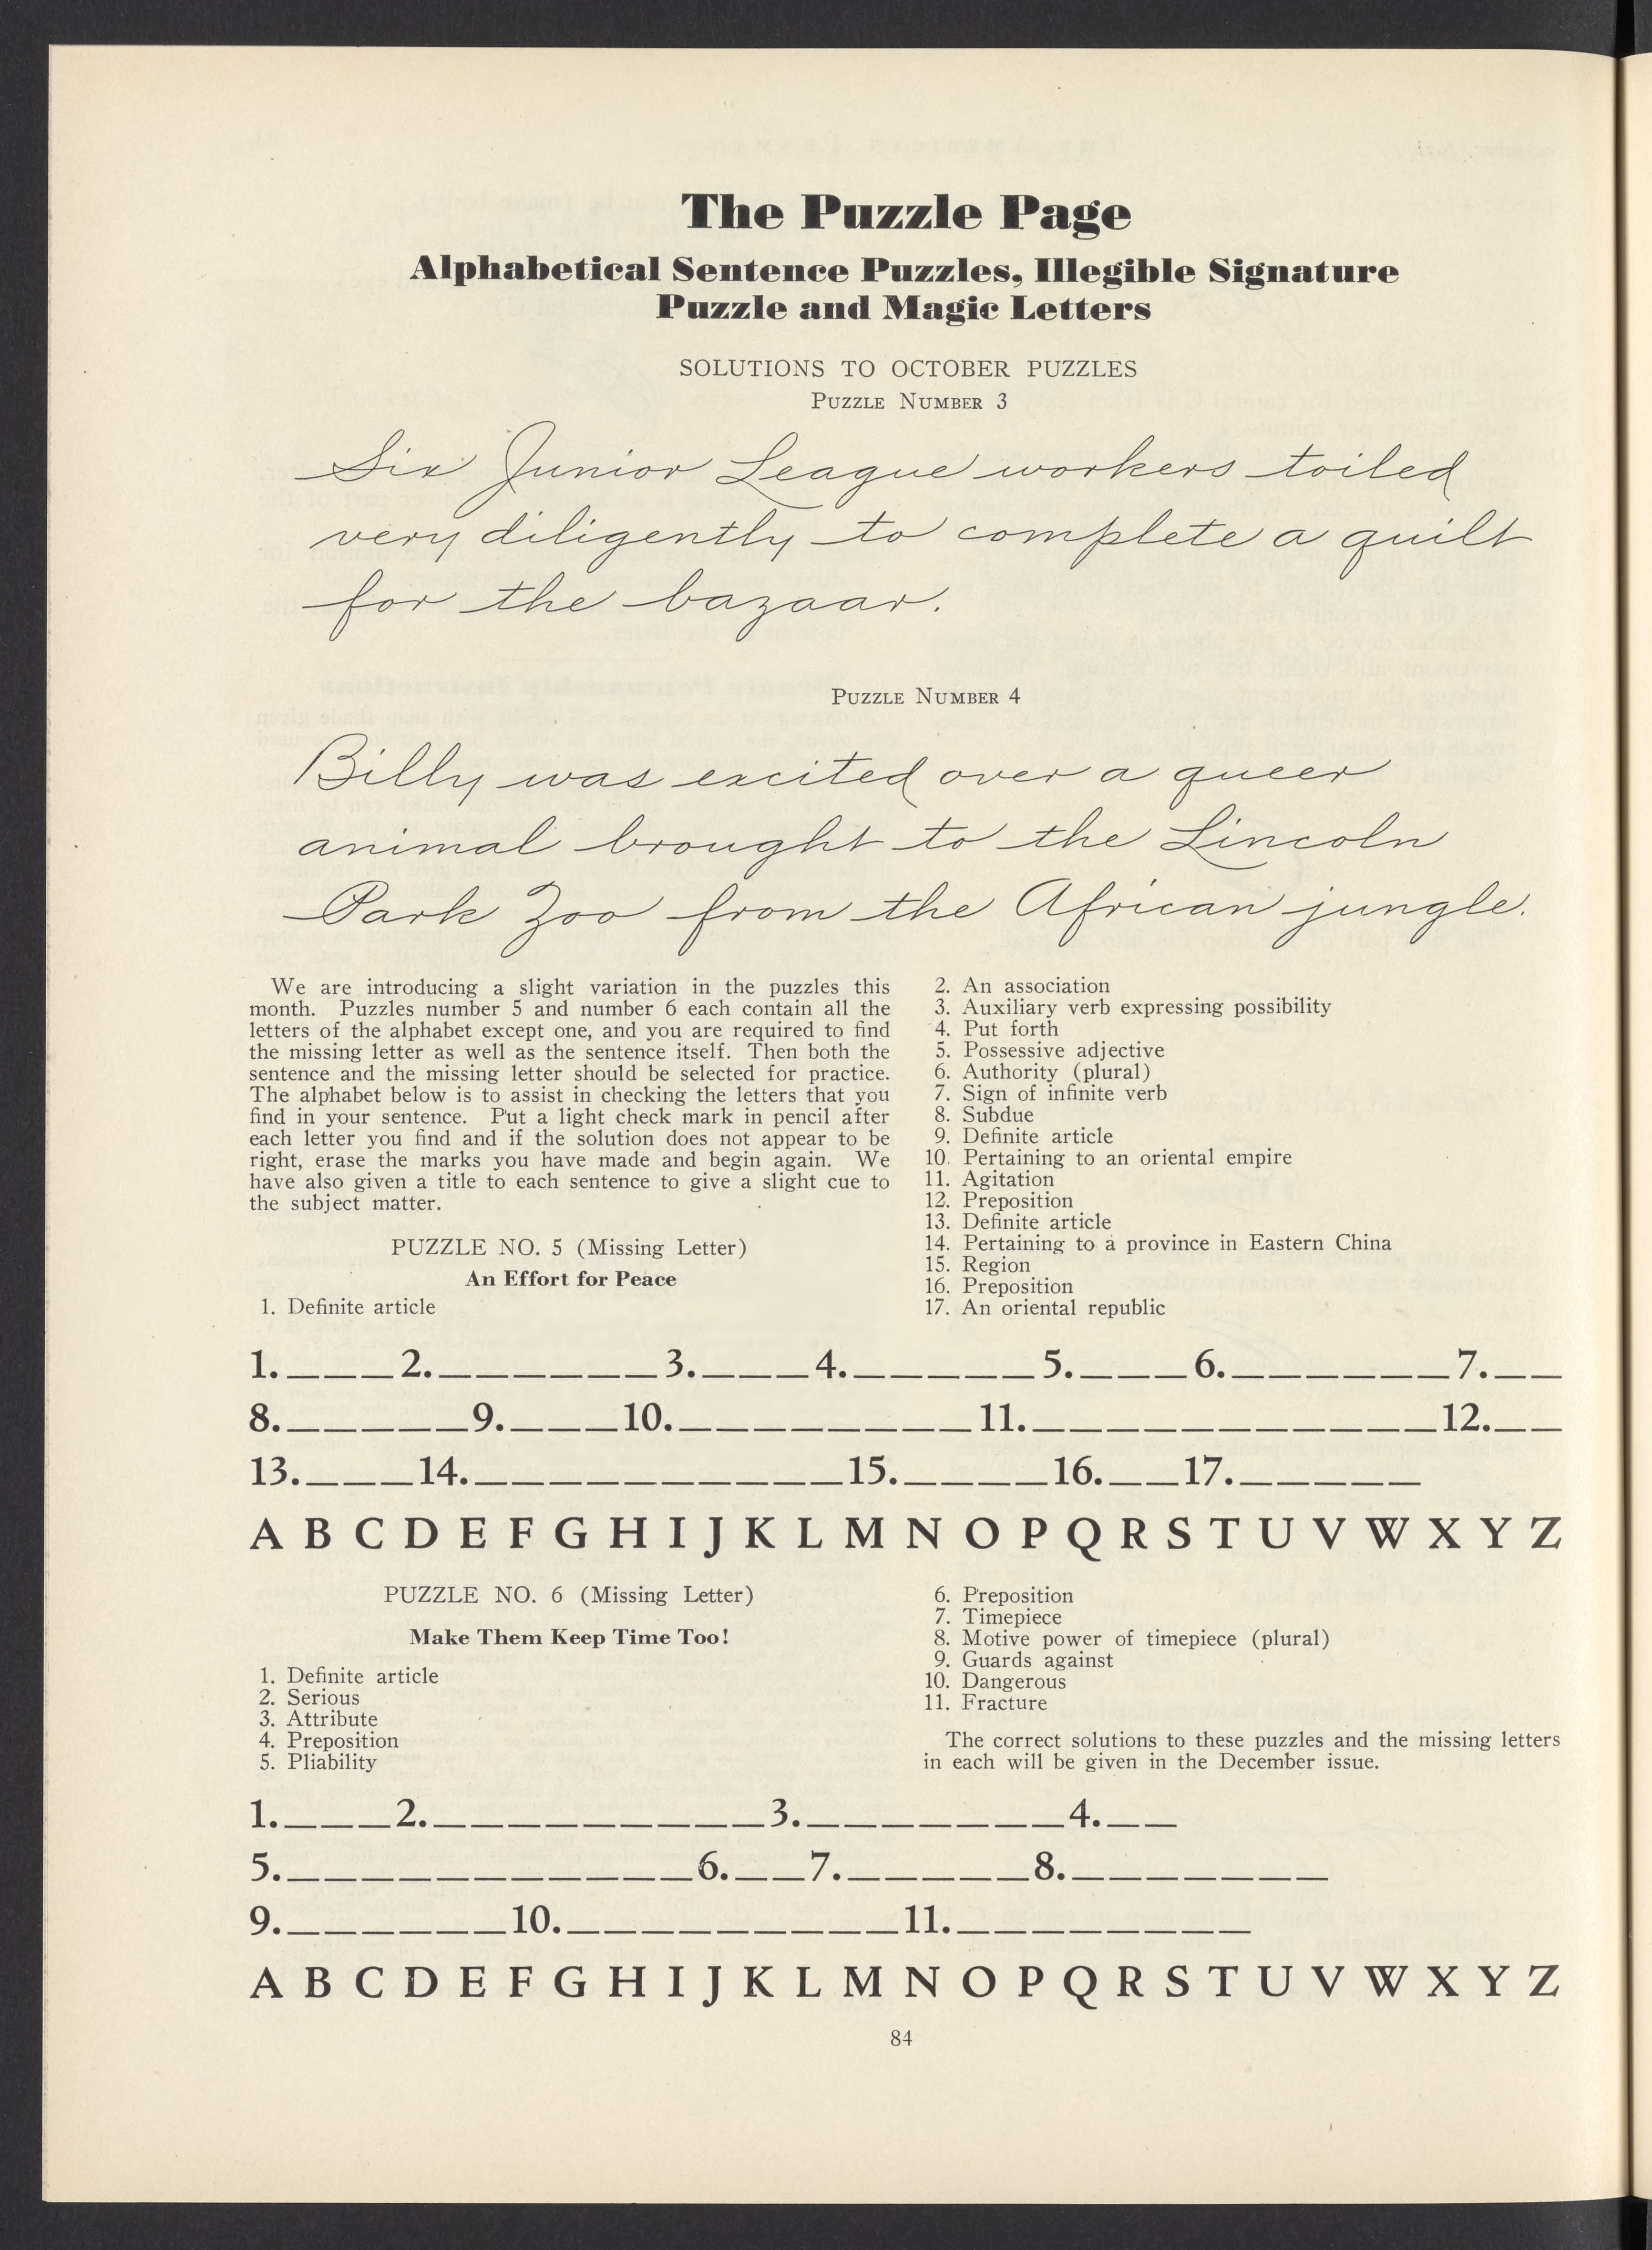 The Puzzle Page
Alphabetical Sentence Puzzles, Illegible Signature
Puzzle and Magic Letters
SOLUTIONS TO OCTOBER PUZZLES
PUZZLE NUMBER 3
Six Junior League workers toiled
very diligently to complete a quilt
for the bazaar.
PUZZLE NUMBER 4
Billy was excited over a queer
animal brought to the Lincoln
Park Zoo from the African jungle.
We are introducing a slight variation in the puzzles this
month. Puzzles number 5 and number 6 each contain all the
letters of the alphabet except one, and you are required to find
the missing letter as well as the sentence itself. Then both the
sentence and the missing letter should be selected for practice.
The alphabet below is to assist in checking the letters that you
find in your sentence. Put a light check mark in pencil after
each letter you find and if the solution does not appear to be
right, erase the marks you have made and begin again. We
have also given a title to each sentence to give a slight cue to
the subject matter.
PUZZLE NO. 5 (Missing Letter)
An Effort for Peace
1. Definite article
2. An association
3. Auxiliary verb expressing possibility
4. Put forth
5. Possessive adjective
6. Authority (plural)
7. Sign of infinite verb
8. Subdue
9. Definite article
10. Pertaining to an oriental empire
11. Agitation
12. Preposition
13. Definite article
14. Pertaining to a province in Eastern China
15. Region
16. Preposition
17. An oriental republic
1. _ _ _ 2. _ _ _ _ _ _ 3. _ _ _ 4. _ _ _ _ _ 5. _ _ _ 6. _ _ _ _ _ _ 7. _ _
8. _ _ _ _ _ 9. _ _ _ 10. _ _ _ _ _ _ _ _ 11. _ _ _ _ _ _ _ _ _ _ _ 12. _ _
13. _ _ _ 14. _ _ _ _ _ _ _ _ _ _ 15. _ _ _ _ 16. _ _ 17. _ _ _ _ _
A B C D E F G H I J K L M N O P Q R S T U V W X Y Z
PUZZLE NO. 6 (Missing Letter)
Make Them Keep Time Too!
1. Definite article
2. Serious
3. Attribute
4. Preposition
5. Pliability
6. Preposition
7. Timepiece
8. Motive power of timepiece (plural)
9. Guards against
10. Dangerous
11. Fracture
The correct solutions to these puzzles and the missing letters
in each will be given in the December issue.
1. _ _ _ 2. _ _ _ _ _ _ _ _ _ 3. _ _ _ _ _ _ _ 4. _ _
5. _ _ _ _ _ _ _ _ _ _ _ 6. _ _ 7. _ _ _ _ _ 8. _ _ _ _ _ _ _
9. _ _ _ _ _ _ 10. _ _ _ _ _ _ _ _ _ 11. _ _ _ _ _ _ _ _
A B C D E F G H I J K L M N O P Q R S T U V W X Y Z
84